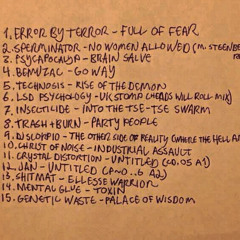 1. ERROR BY TERROR - FULL OF FEAR
2. SPERMINATOR - NO WOMEN ALLOWED (M. STEENBE
3. PSYCAPOCALYP - BRAIN SALVE
4. BEMUZAC - GO WAY
5. TECHNOSIS - RISE OF THE DEMON
6. LSD PSYCHOLOGY - UK STOMP (HEADS WILL ROLL MIX)
7. INSECTICIDE - INTO THE TSE-TSE SWARM
8. TRASH + BURN - PARTY PEOPLE
9. DJ SCORPIO - THE OTHER SIDE OF REALITY (WHERE THE HELL AM
10. CHRIST OF NOISE - INDUSTRIAL ASSAULT
11. CRYSTAL DISTORTION - UNTITLED (CD.05 A1)
12. JAN - UNTITLED
13. SHITMAT - ELLESSE WARRIOR
14. MENTAL GLUE - TOXIN
15. GENETIC WASTE - PALACE OF WISDOM